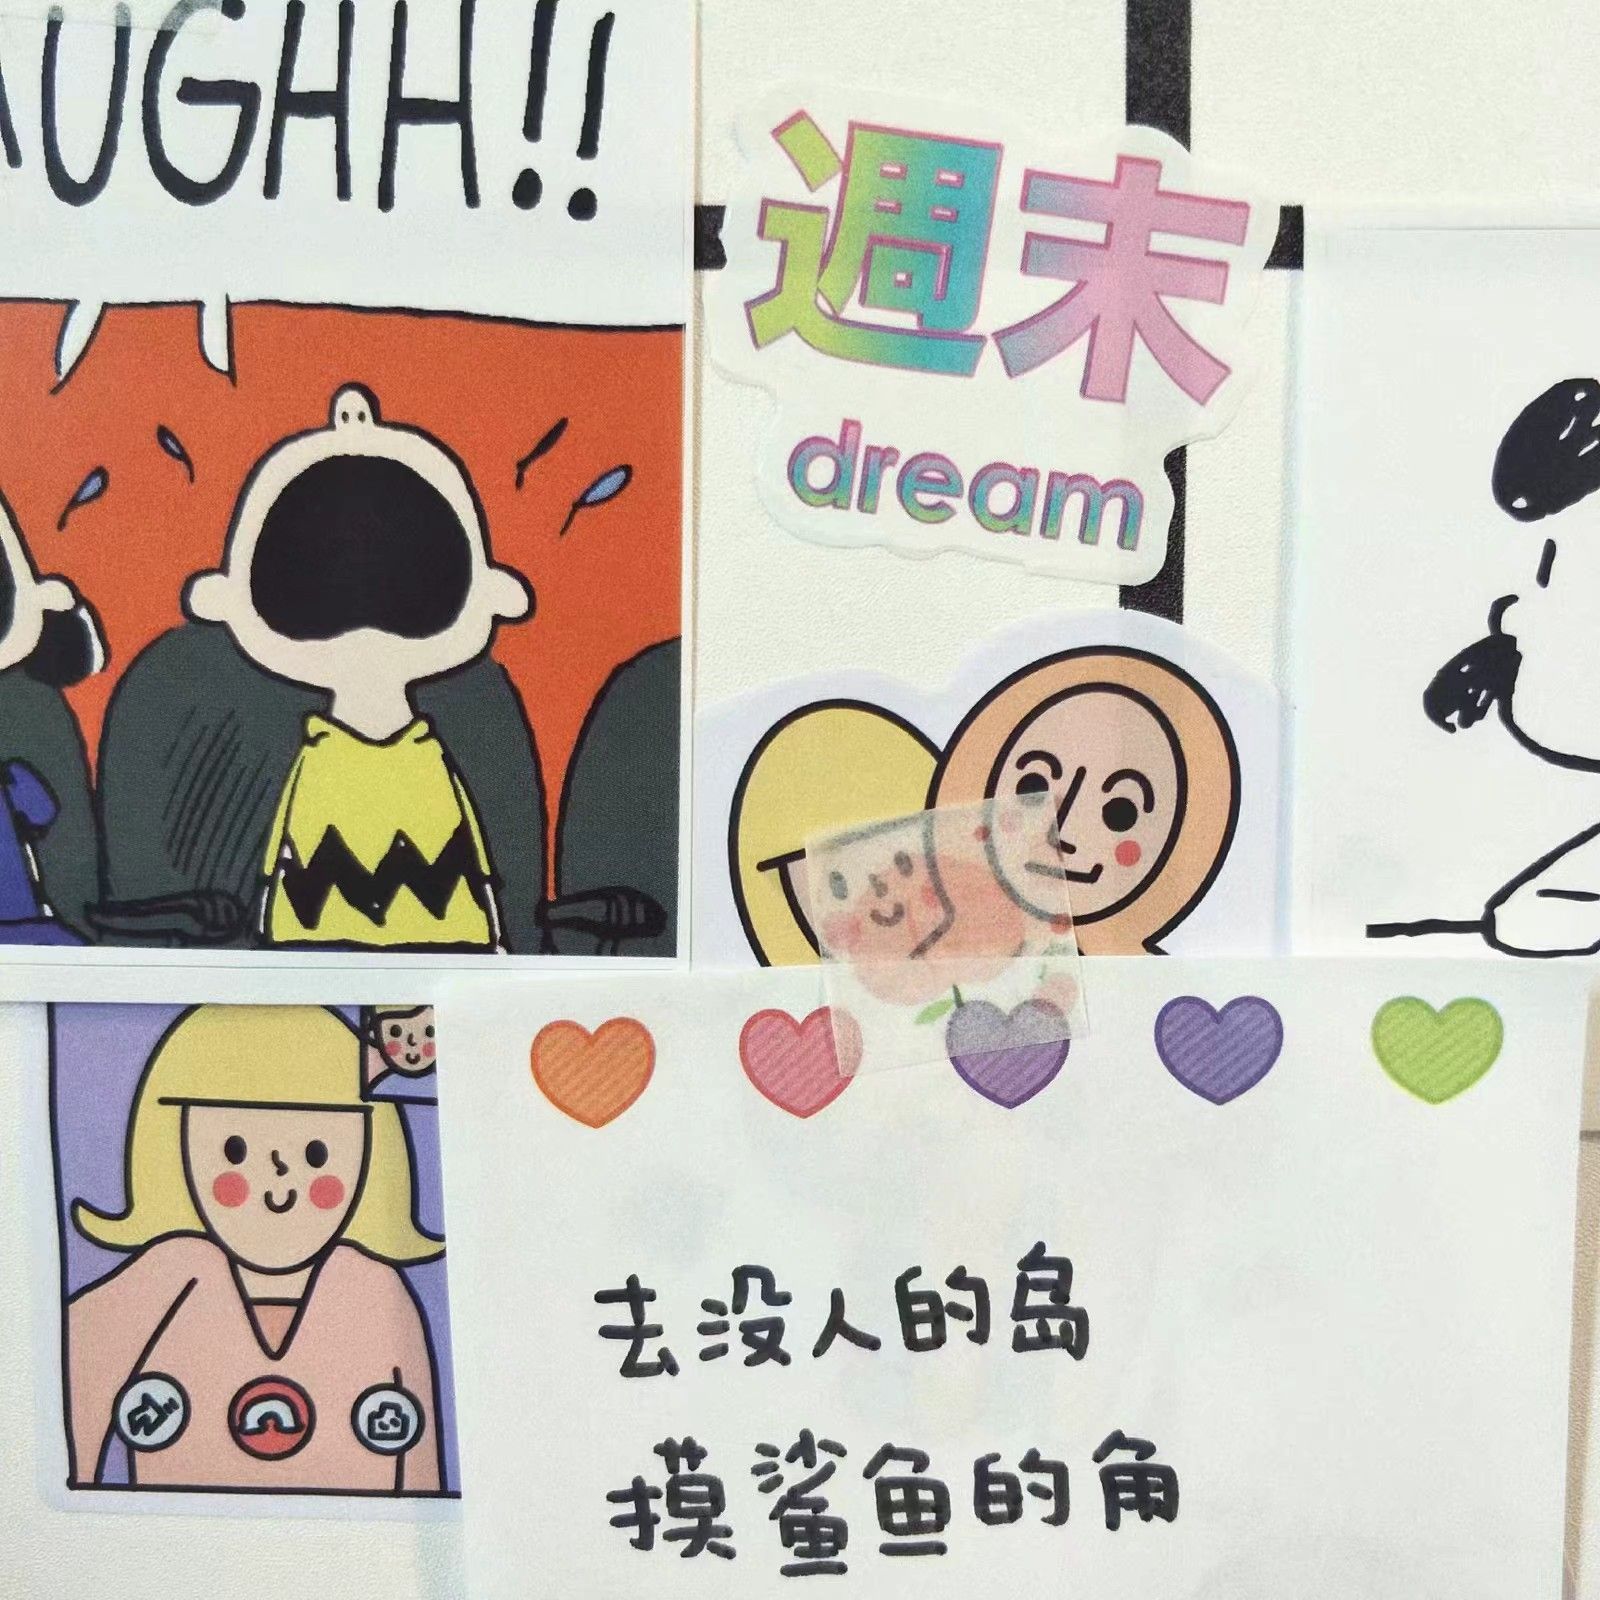 AUGHH!!
週末
dream
去没人的岛
摸鲨鱼的角